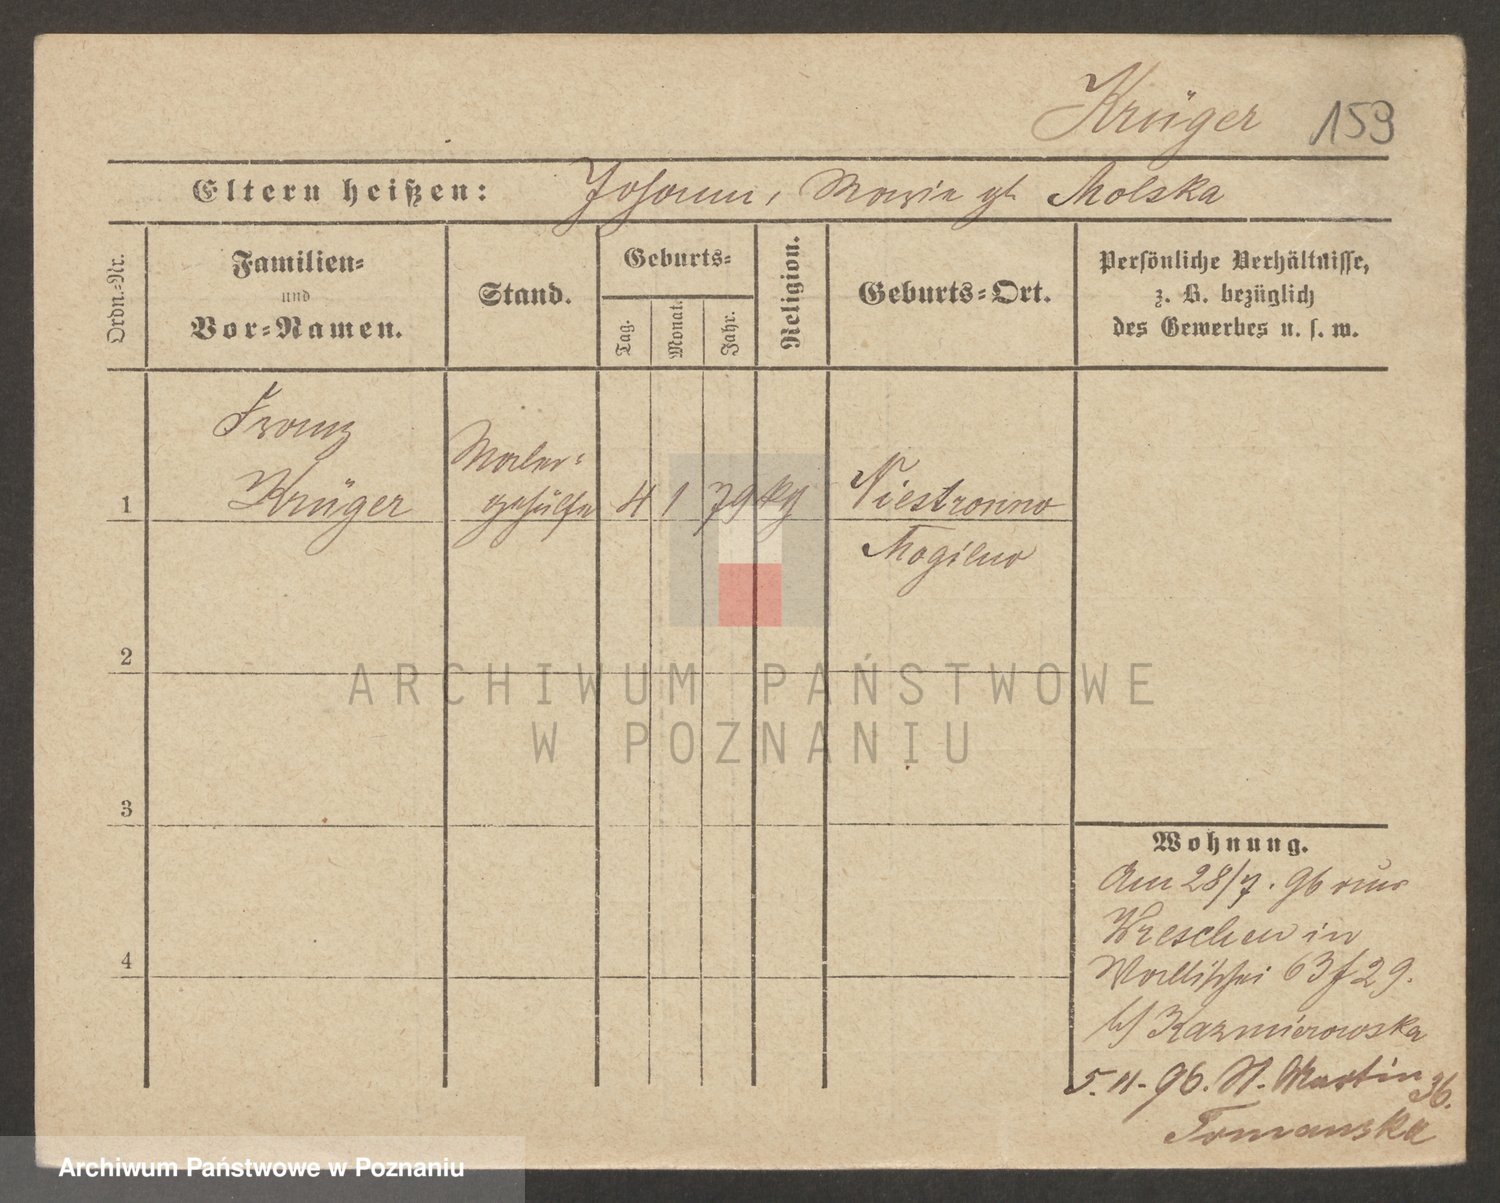 Krüger 159
Eltern heißen: Johann, Marie gb Molska
Ordn.-Nr.
Familien-
und
Vor-Namen.
Stand.
Geburts-
Tag.
Monat.
Jahr.
Religion.
Geburts-Ort.
Persönliche Verhältnisse,
z. B. bezüglich
des Gewerbes u. s. w.
1
Franz
Krüger
Maler-
gehülfe
4 1 79
Niestronno
Mogilno
2
3
4
Wohnung.
Am 28/7. 96 aus
Wreschen in
Wallischei 63 f 29.
b/ Kazmierowska
5. 11. 96. St. Martin 36.
Tomanska
ARCHIWUM PAŃSTWOWE
W POZNANIU
Archiwum Państwowe w Poznaniu